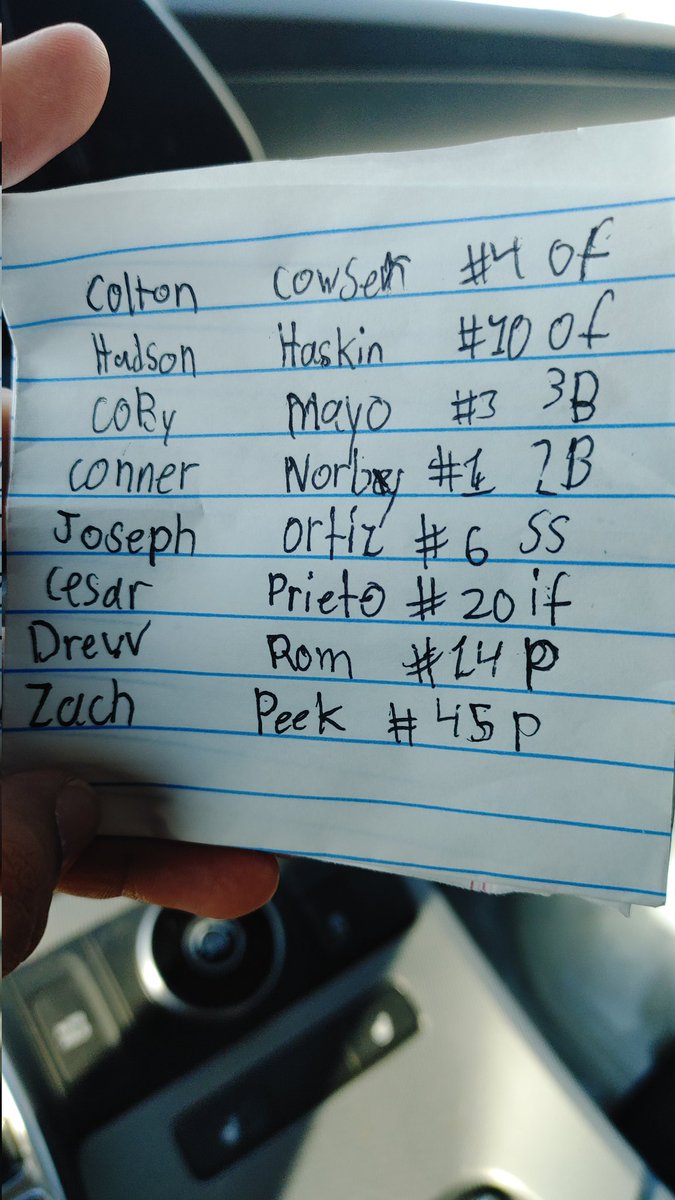 Colton Cowser #4 Of
Hudson Haskin #10 Of
CoBy Mayo #3 3B
conner Norby #1 2B
Joseph Ortiz #6 SS
Cesar Prieto #20 if
Drew Rom #14 p
Zach Peek #45 p